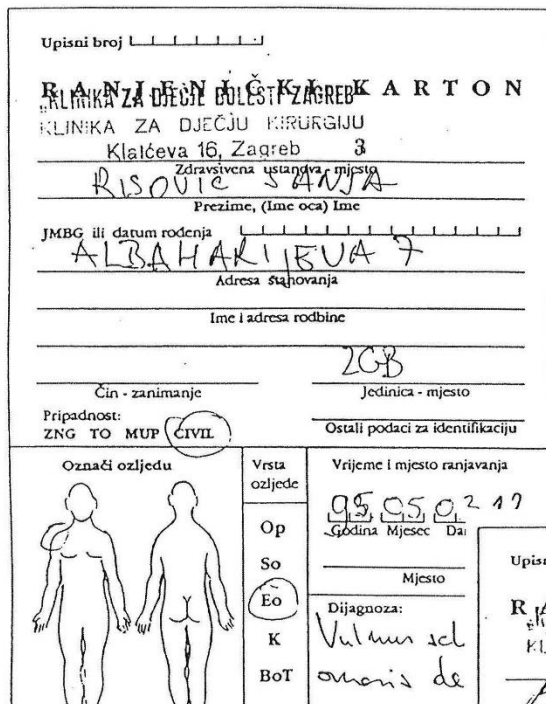 Upisni broj
RANJENIČKI KARTON
KLINIKA ZA DJEČJE BOLESTI ZAGREB
KLINIKA ZA DJEČJU KIRURGIJU
Klaićeva 16, Zagreb 3
Zdravstvena ustanova - mjesto
RISOVIĆ SANJA
Prezime, (Ime oca) Ime
JMBG ili datum rođenja
ALBAHARIJEVA 7
Adresa stanovanja
Ime i adresa rodbine
ZGB
Čin - zanimanje
Jedinica - mjesto
Pripadnost:
ZNG TO MUP CIVIL
Ostali podaci za identifikaciju
Označi ozljedu
Vrsta ozljede
Op
So
Eo
K
BoT
Vrijeme i mjesto ranjavanja
95 05 02
Godina Mjesec Da
Mjesto
Dijagnoza:
Vulnus scl
omeris de
Upisn
R A
KL